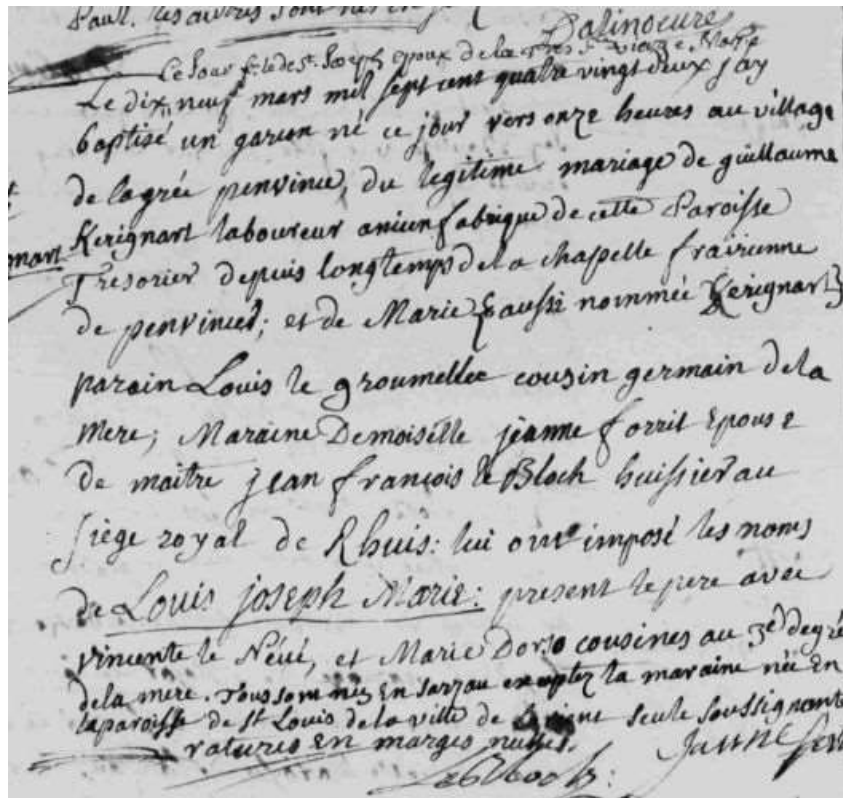 Paull. les autres sont nés en
Dalino cure
Ce jour fete de st. Joseph epoux de la tres ste vierge Marie
Le dix neuf mars mil sept cent quatre vingt deux jay
baptisé un garcon né ce jour vers onze heures au village
de la grée penvince, du legitime mariage de guillaume
Kerignart laboureur ancien fabrique de cette Paroisse
mart
Tresorier depuis longtemps de la chapelle frairienne
de penvince; et de Marie nommée Kerignart
parain Louis le groumellec cousin germain de la
mere; Maraine Demoiselle jeanne forrit Epouse
de maitre jean françois le Bloch huissier au
siège royal de Rhuis: lui ont imposé les noms
de Louis joseph Marie: present le pere avec
vincente le Névé, et Marie Dorso cousines au 3e degré
de la mere. Tous sont nés En sarzau exceptez la maraine née En
la paroisse de st Louis de la ville de seule soussignante
ratures En marges nulles.
Jeanne